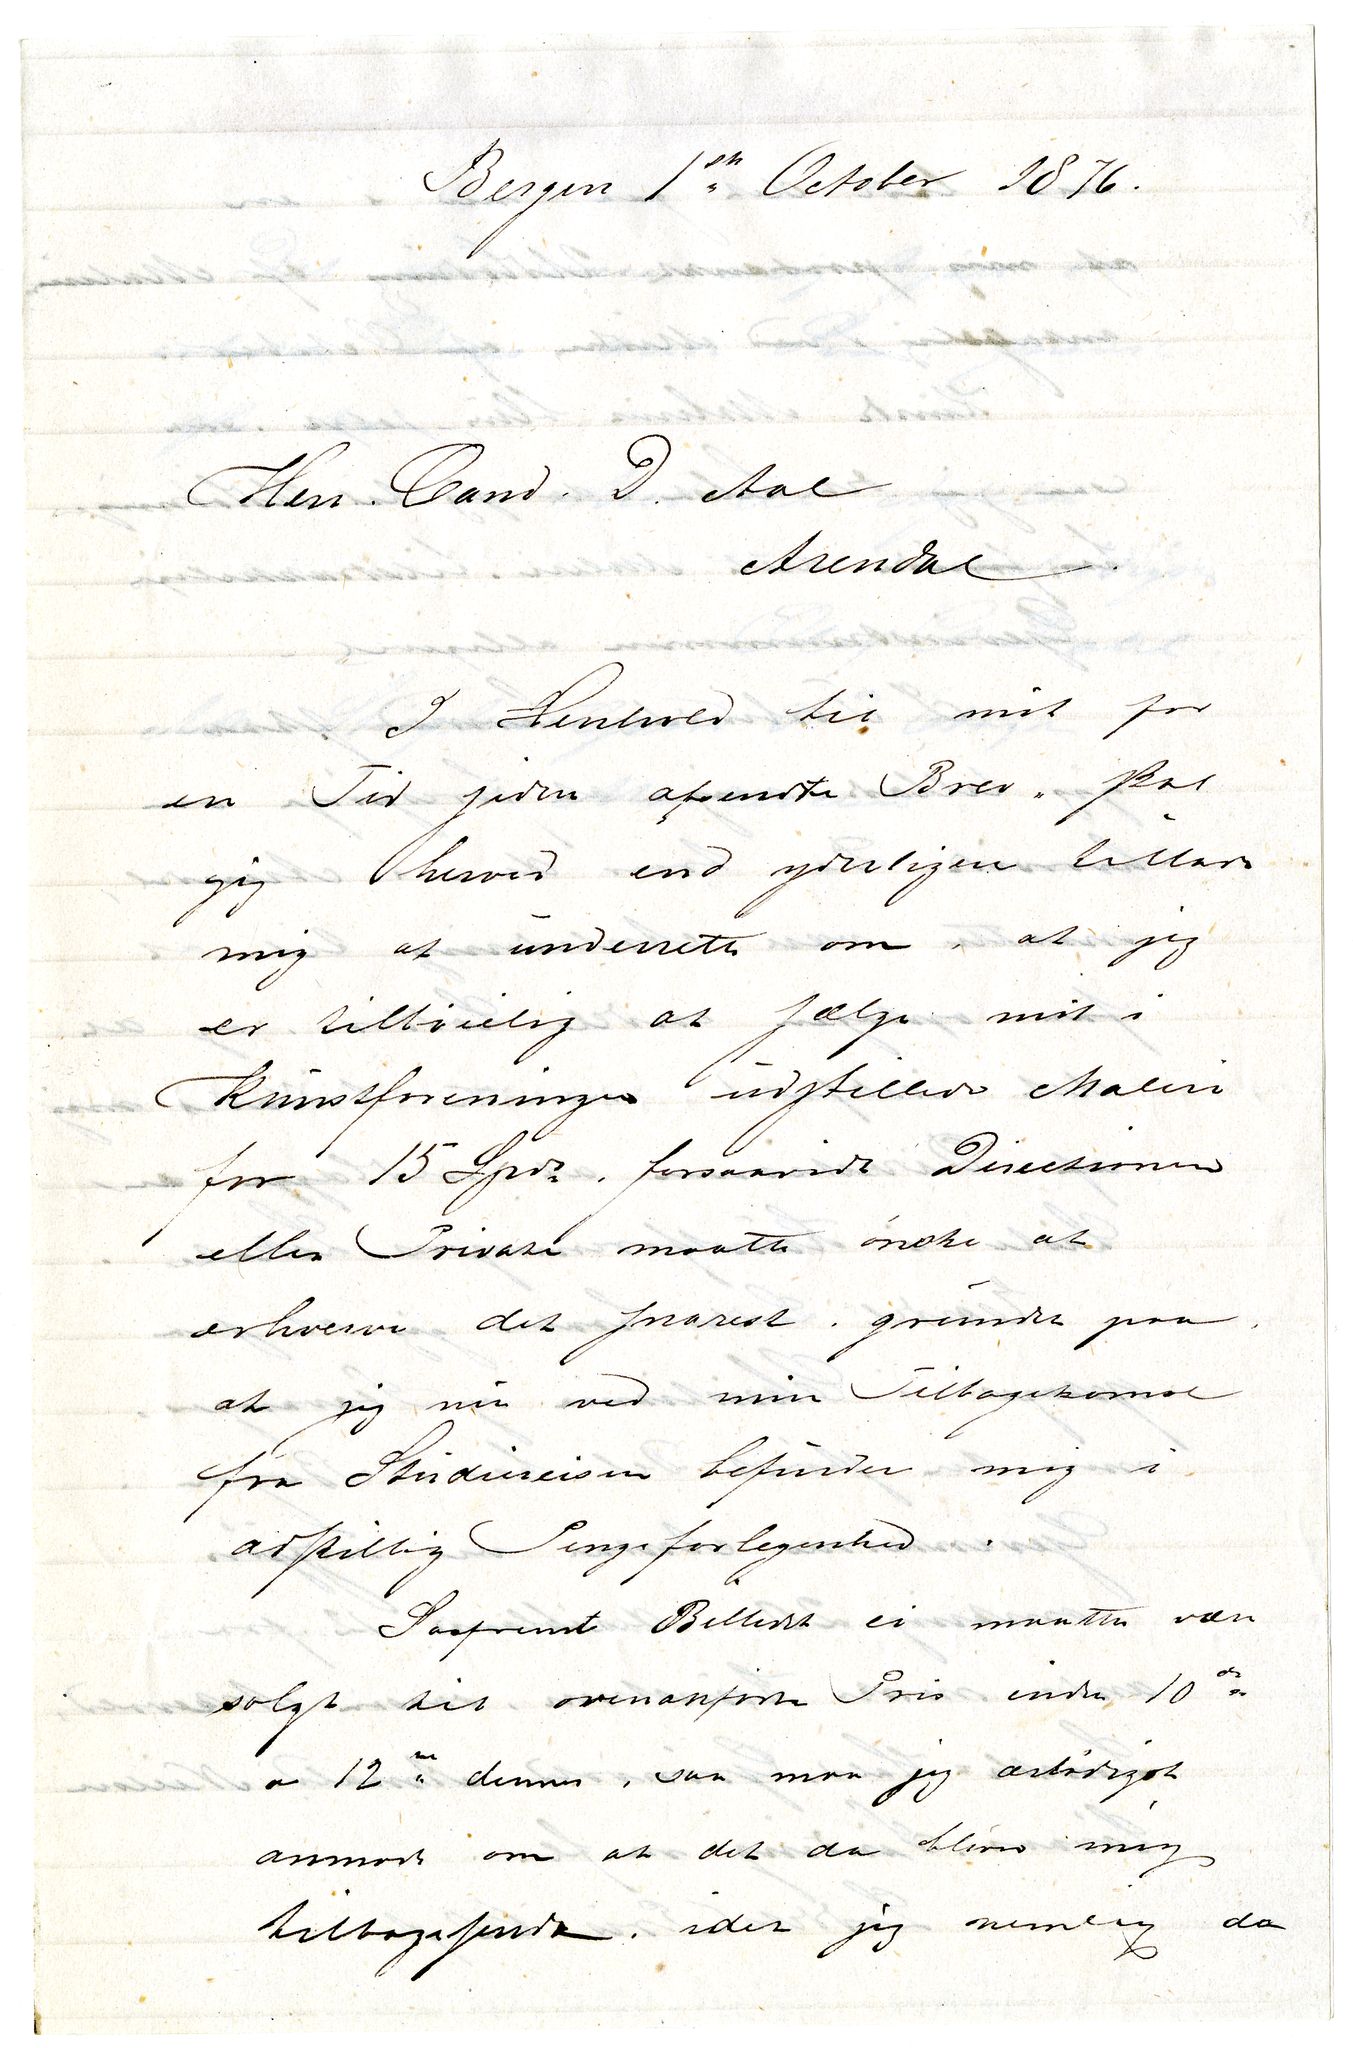 Bergen 1ste October 1876.
Herr. Cand. D. Aal
Arendal.
I Henhold til mit for
en Tid siden afsendte Brev, skal
jeg herved end yderligere tillade
mig at underrette om, at jeg
er tilbøielig at sælge mit i
Kunstforeningen udstillede Maleri
for 15 Spd., forsaavidt Directionen
eller Private maatte ønske at
erhverve det snarest. grundet paa,
at jeg nu ved min Tilbagekomst
fra Studiereisen befinder mig i
adskillig Pengeforlegenhed.
Saafremt Billedet ei maatte være
solgt til ovenanførte Pris inden 10de
a 12te dennes, saa maa jeg ærbødigst
anmode om at det da bliver mig
tilbagesendt. idet jeg nemlig da